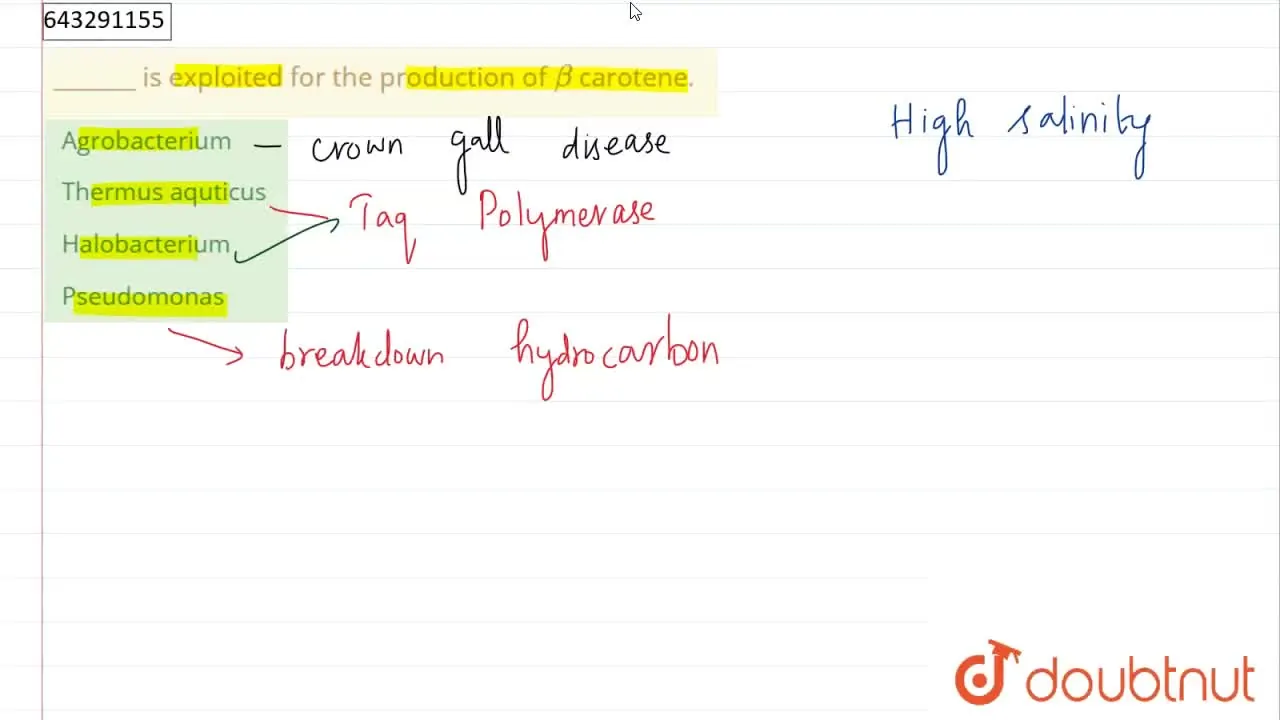 643291155
______ is exploited for the production of β carotene.
High salinity
Agrobacterium – crown gall disease
Thermus aquticus
Taq Polymerase
Halobacterium
Pseudomonas
breakdown hydrocarbon
doubtnut